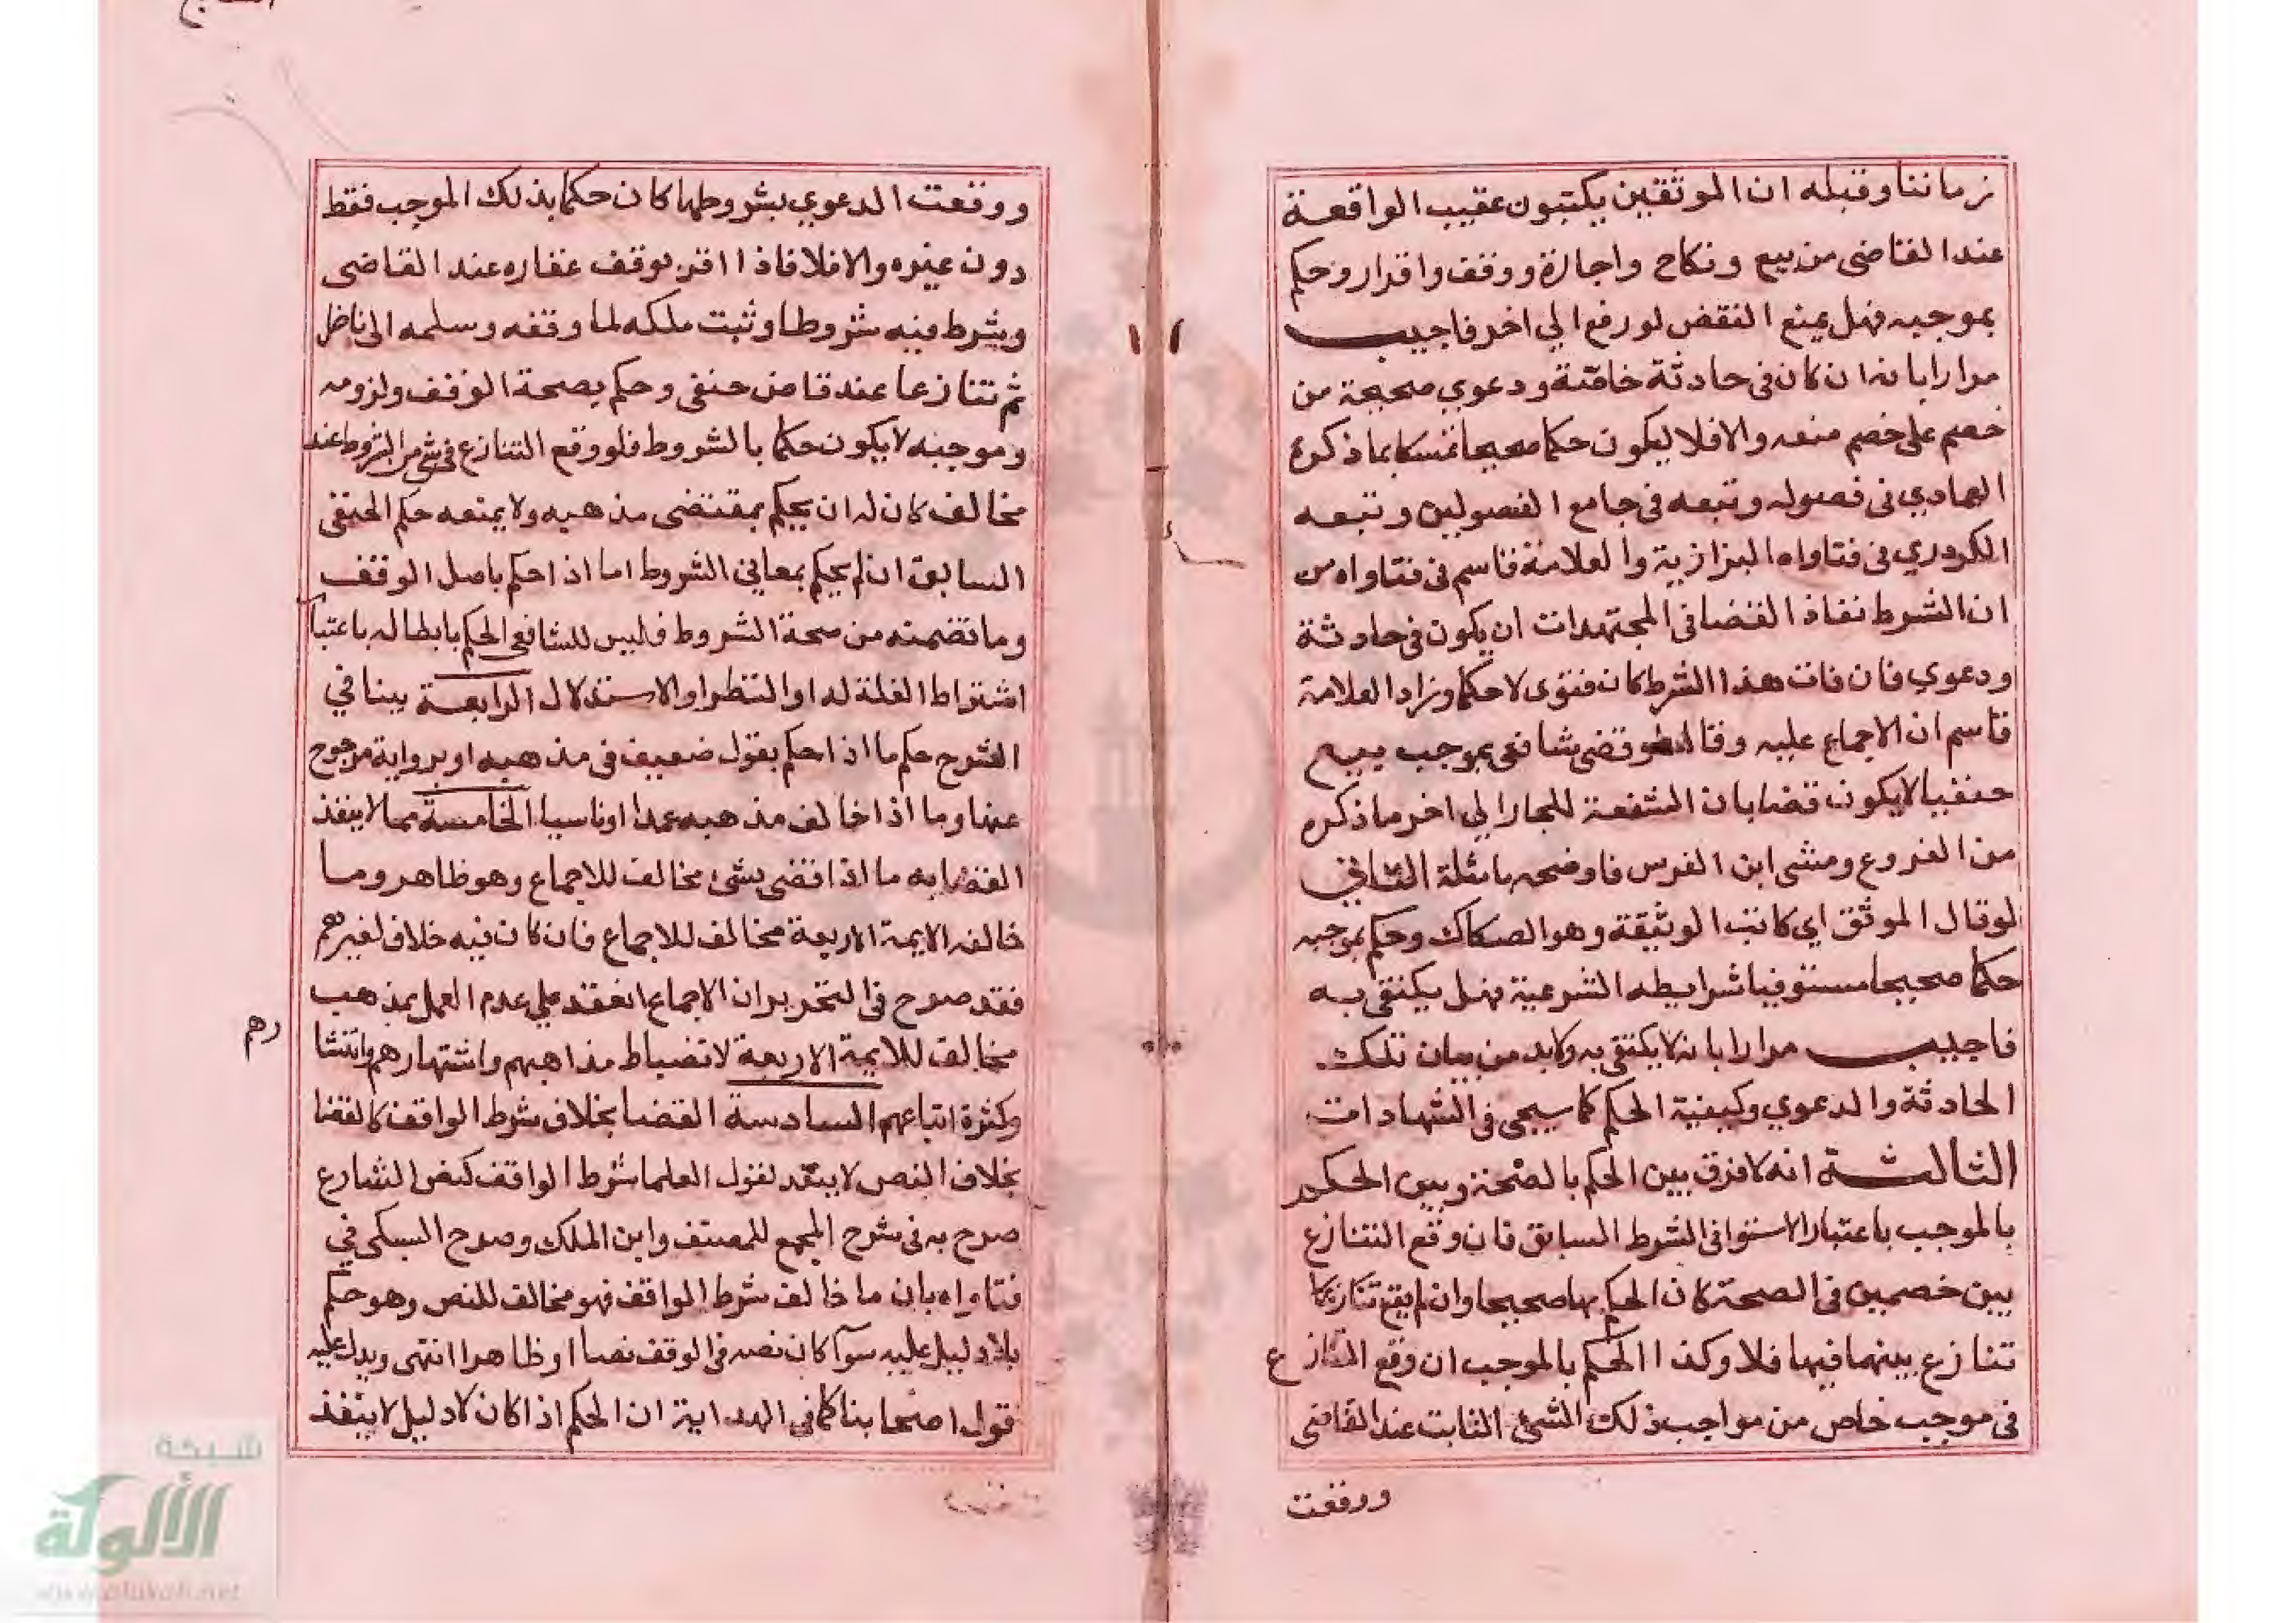 زماننا وقبله ان الموثقين يكتبون عقيب الواقعة
عند القاضى من بيع ونكاح واجازة ووقف واقرار وحكم
بموجبه فهل يمنع النقض لو رفع الي اخر فاجيب
مرارا بانه ان كان فى حادثة خاصة ودعوي صحيحة من
خصم على خصم منعه والا فلا ليكون حكما صحيحا تمسكا بما ذكره
العمادي فى فصوله وتبعه فى جامع الفصولين وتبعه
الكردري فى فتاواه البزازية والعلامة قاسم فى فتاواه من
ان الشرط نفاذ القضا فى المجتهدات ان يكون فى حادثة
ودعوي فان فات هذا الشرط كان فتوى لا حكما وزاد العلامة
قاسم ان الاجماع عليه وقال لو قضى شافعى بموجب بيع
حنفيا لا يكون قضا بان الشفعة للجار الي اخر ما ذكره
من الفروع ومشى ابن الغرس فاوضحه بامثلة الثاني
لو قال الموثق اي كاتب الوثيقة وهو الصكاك وحكم بموجبه
حكما صحيحا مستوفيا شرايطه الشرعية فهل يكتفى به
فاجيب مرارا بانه لا يكتفى به ولا بد من بيان تلك
الحادثة والدعوي وكيفية الحكم كما سيجى فى الشهادات
الثالثة انه لا فرق بين الحكم بالصحة وبين الحكم
بالموجب باعتبار الاستوا فى الشرط السابق فان وقع التنازع
بين خصمين فى الصحة كان الحكم بها صحيحا وان لم يقع
تنازع بينهما فيها فلا وكذا الحكم بالموجب ان وقع التنازع
فى موجب خاص من مواجب ذلك الشئ الثابت عند القاضى
ووقعت
ووقعت الدعوي بشروطها كان حكما بذلك الموجب فقط
دون غيره والا فلا فاذا اقر بوقف عقاره عند القاضى
وشرط فيه شروطا وثبت ملكه لما وقفه وسلمه الى ناظر
ثم تنازعا عند قاض حنفى وحكم بصحة الوقف ولزومه
وموجبه لا يكون حكما بالشروط فلو وقع التنازع فى شئ من الشروط عند
مخالف كان له ان يحكم بمقتضى مذهبه ولا يمنعه حكم الحنفى
السابق ان لم يحكم بمعاني الشروط اما اذا حكم باصل الوقف
وما تضمنه من صحة الشروط فليس للشافعى الحكم بابطاله باعتبا
اشتراط الغلة له او النظر او الاستدلال الرابعة بينا في
الشرح حكم ما اذا حكم بقول ضعيف فى مذهبه او برواية مرجوح
عنها وما اذا خالف مذهبه عمدا او ناسيا الخامسة مما لا ينفذ
القضا به ما اذا قضى بشئ مخالف للاجماع وهو ظاهر وما
خالف الايمة الاربعة مخالف للاجماع فان كان فيه خلاف لغيرهم
فقد صرح فى التحرير ان الاجماع انعقد علي عدم العمل بمذهب
مخالف للايمة الاربعة لانضباط مذاهبهم واشتهارهم وانتشا
رهم
وكثرة اتباعهم السادسة القضا بخلاف شرط الواقف كالقضا
بخلاف النص لا ينفذ لقول العلما شرط الواقف كنص الشارع
صرح به فى شرح المجمع للمصنف وابن الملك وصرح السبكى في
فتاواه بان ما خالف شرط الواقف فهو مخالف للنص وهو حكم
بلا دليل عليه سوآ كان نصه فى الوقف نصا او ظاهرا انتهى ويدل عليه
قول اصحابنا كما فى الهداية ان الحكم اذا كان لا دليل لا ينفذ
شبكة
الألوكة
www.alukah.net